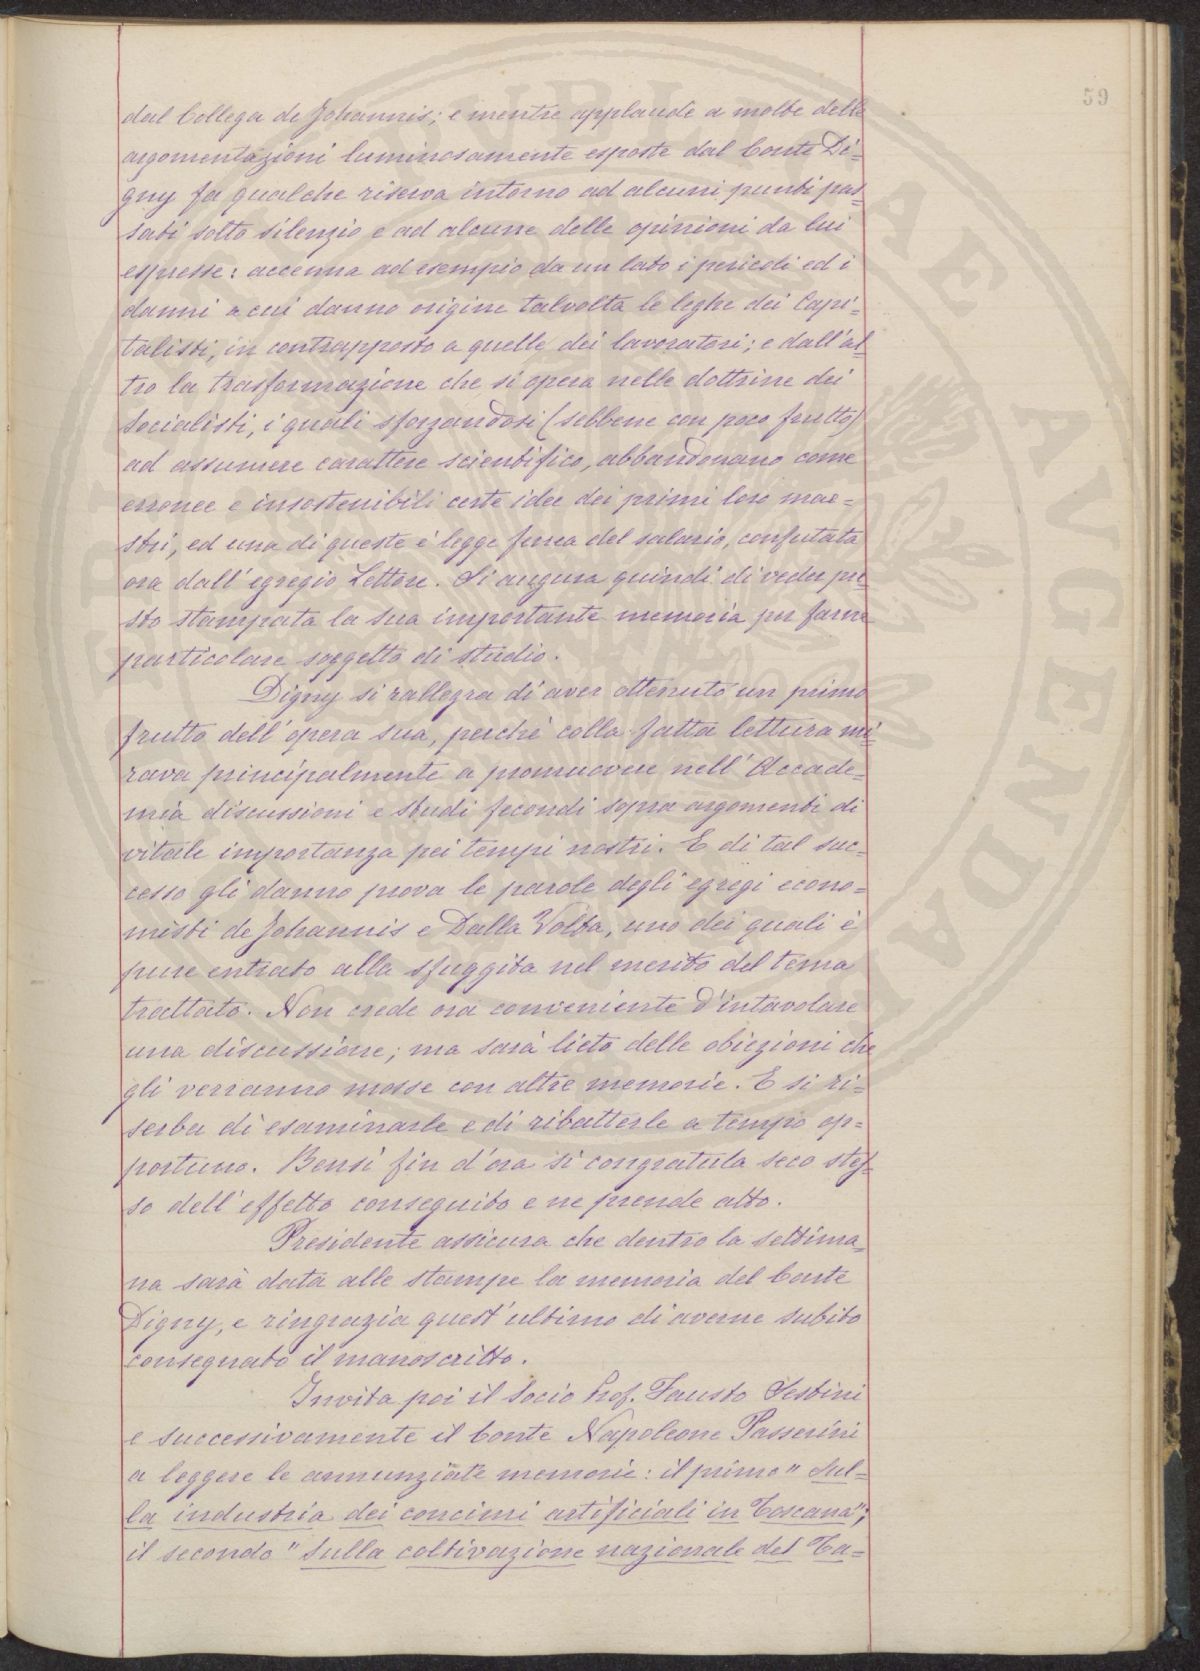 59
dal Collega de Johannis; e mentre applaude a molte delle
argomentazioni luminosamente esposte dal Conte Di=
gny fa qualche riserva intorno ad alcuni punti pas=
sati sotto silenzio e ad alcune delle opinioni da lui
espresse: accenna ad esempio da un lato i pericoli ed i
danni a cui danno origine talvolta le leghe dei Capi=
talisti, in contrapposto a quelle dei lavoratori; e dall'al=
tro la trasformazione che si opera nelle dottrine dei
Socialisti, i quali sforzandosi (sebbene con poco frutto)
ad assumere carattere scientifico, abbandonano come
erronee e insostenibili certe idee dei primi loro mae=
stri, ed una di queste è legge ferrea del salario, confutata
ora dall'egregio Lettore. Si augura quindi di veder pre=
sto stampata la sua importante memoria per farne
particolare soggetto di studio.
Digny si rallegra di aver ottenuto un primo
frutto dell'opera sua, perchè colla fatta lettura mi=
rava principalmente a promuovere nell'Accade=
mia discussioni e studi fecondi sopra argomenti di
vitale importanza pei tempi nostri. E di tal suc=
cesso gli danno prova le parole degli egregi econo=
misti de Johannis e Dalla Volta, uno dei quali è
pure entrato alla sfuggita nel merito del tema
trattato. Non crede ora conveniente d'intavolare
una discussione; ma sarà lieto delle obiezioni che
gli verranno mosse con altre memorie. E si ri=
serba di esaminarle e di ribatterle a tempo op=
portuno. Bensì fin d'ora si congratula seco stes=
so dell'effetto conseguito e ne prende atto.
Presidente assicura che dentro la settima=
na sarà data alle stampe la memoria del Conte
Digny, e ringrazia quest'ultimo di averne subito
consegnato il manoscritto.
Invita poi il Socio Prof. Fausto Sestini
e successivamente il Conte Napoleone Passerini
a leggere le annunziate memorie: il primo "Sul=
la industria dei concimi artificiali in Toscana";
il secondo "Sulla coltivazione nazionale del Ta=